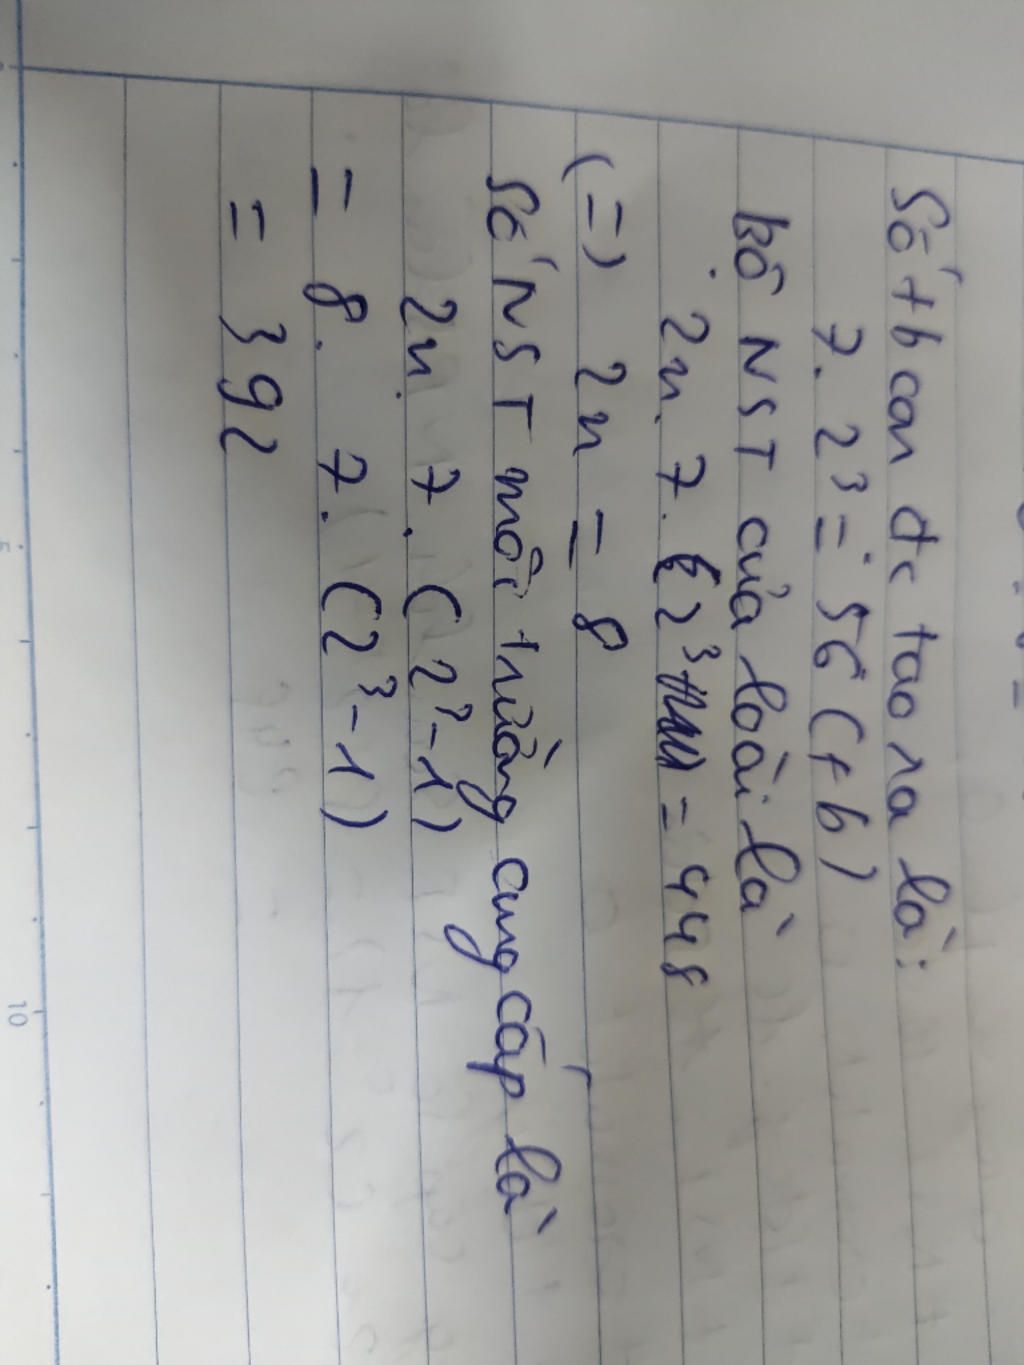 Số tb con đc tạo ra là:
7. 2³ = 56 (tb)
Bộ NST của loài là
2n. 7. 2³ = 448
(=) 2n = 8
Số NST môi trường cung cấp là
2n. 7. (2³-1)
= 8. 7. (2³-1)
= 392
5
10